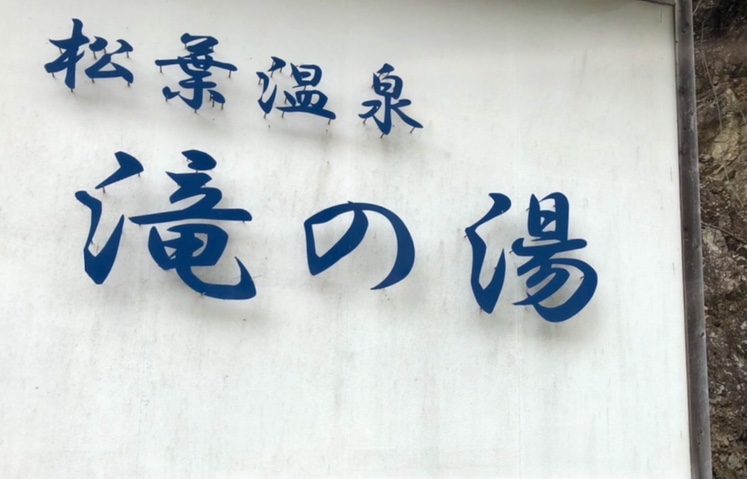 松葉温泉
滝の湯